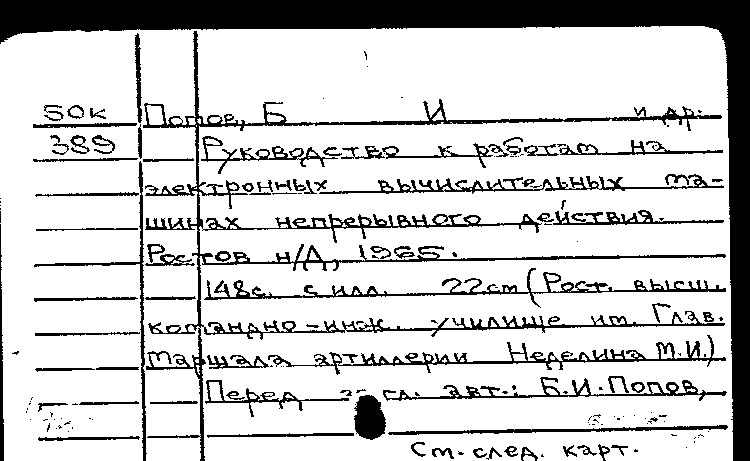 50к Попов, Б И и др.
389 Руководство к работам на
электронных вычислительных ма-
шинах непрерывного действия.
Ростов н/Д, 1965.
148с. с илл. 22см (Рост. высш.
командно-инж. училище им. Глав.
маршала артиллерии Неделина М.И.)
Перед загл. авт.: Б.И.Попов,
См. след. карт.